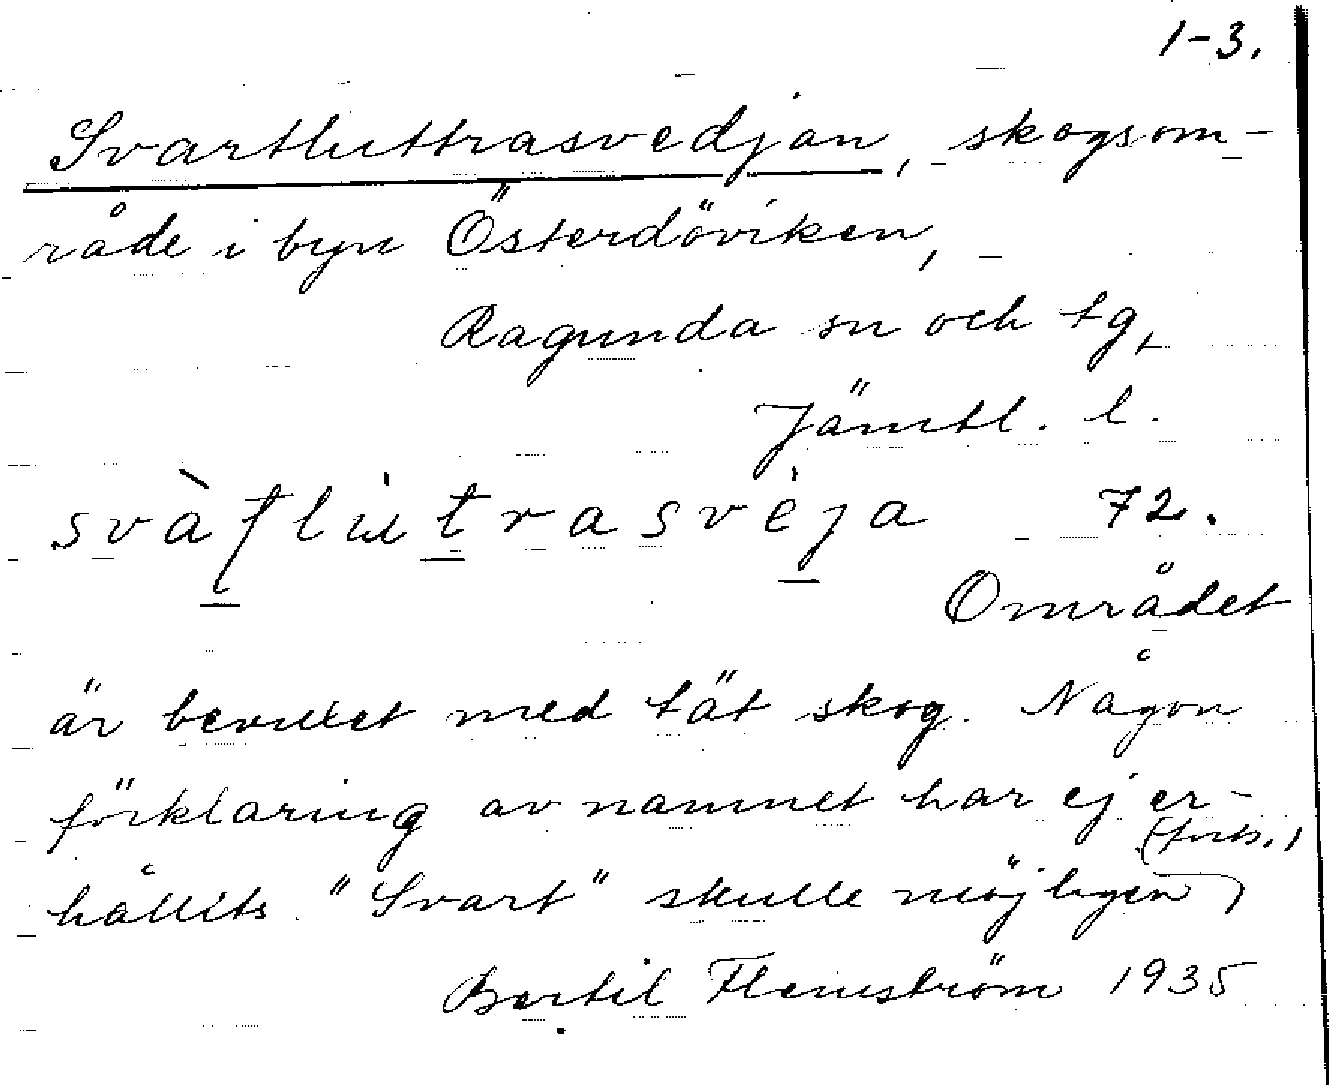 1-3.
Svartluttrasvedjan, skogsom-
råde i byn Österdöviken,
Ragunda sn och tg,
Jämtl. l.
72.
Området
är bevuxet med tät skog. Någon
förklaring av namnet har ej er-
(forts.)
hållits. "Svart" skulle möjligen
Bertil Flemström 1935